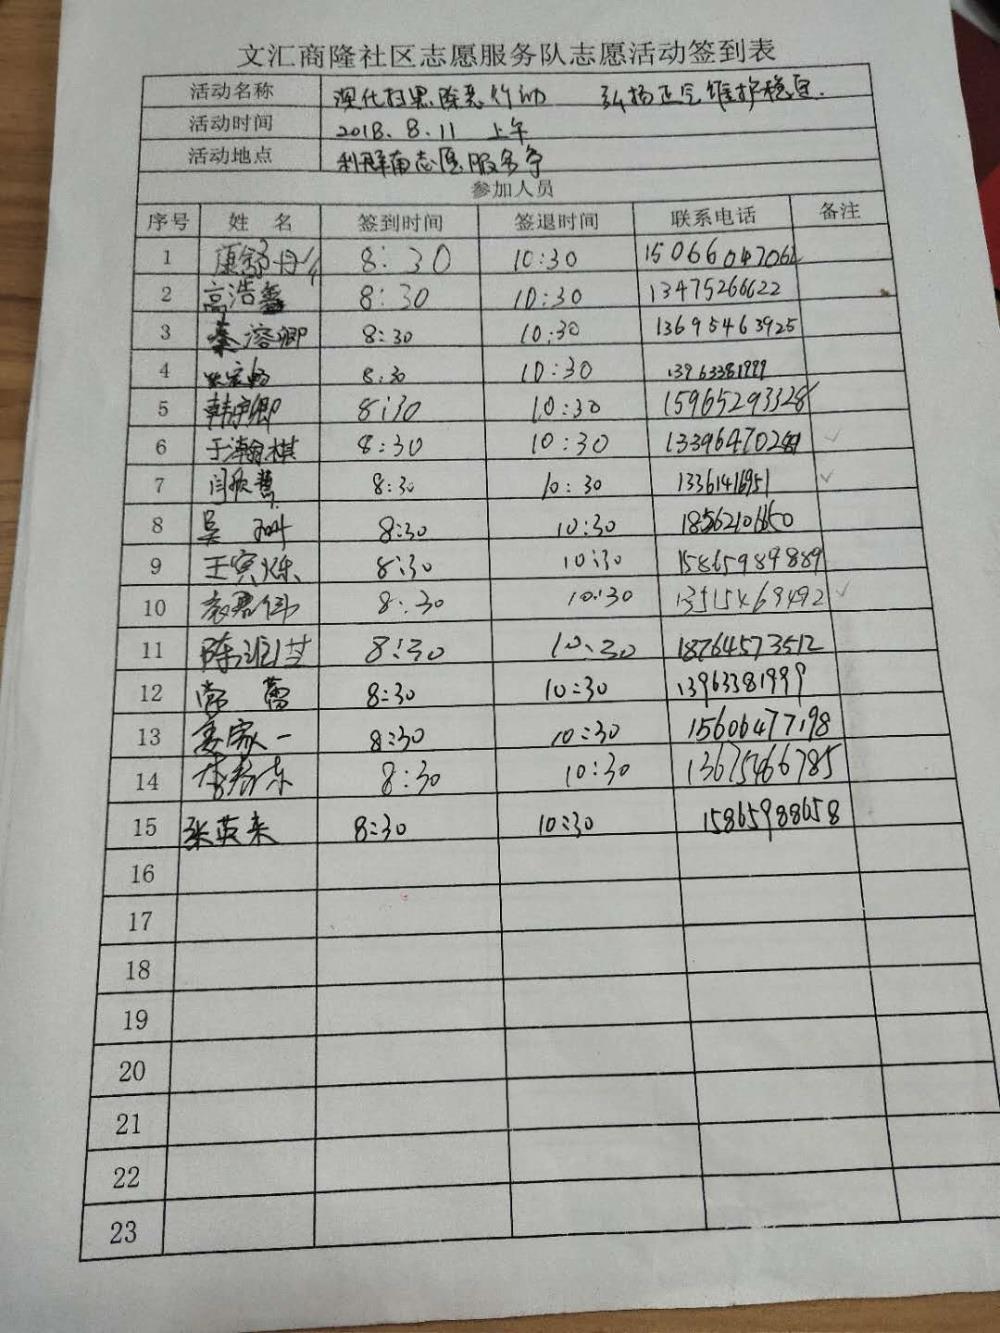 文汇商隆社区志愿服务队志愿活动签到表
活动名称 深化扫黑除恶行动 弘扬正气维护稳定.
活动时间 2018.8.11 上午
活动地点 利群南志愿服务亭
参加人员
序号 姓 名 签到时间 签退时间 联系电话 备注
1 8:30 10:30
2 高浩鑫 8:30 10:30 13475266622
3 秦溶卿 8:30 10:30 13695463925
4 8:30 10:30 13963381999
5 韩宇卿 8:30 10:30 15965293328
6 于瀚棋 8:30 10:30 ✓
7 闫欣慧 8:30 10:30 13361416951 ✓
8 吴 8:30 10:30 18562106650
9 王寅烁 8:30 10:30 15865989889
10 袁君伟 8:30 10:30 13515469492 ✓
11 8:30 10:30 18764573512
12 常蕾 8:30 10:30 13963381999
13 姜家一 8:30 10:30 15606477198
14 8:30 10:30 13675466785
15 张英来 8:30 10:30 15865988658
16
17
18
19
20
21
22
23